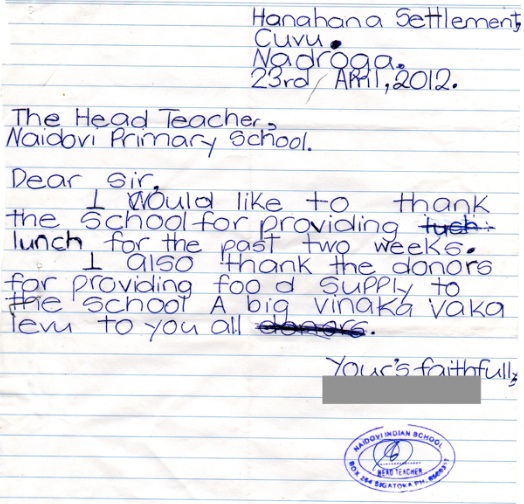 Hanahana Settlement,
Cuvu.
Nadroga.
23rd April, 2012.
The Head Teacher,
Naidovi Primary School.
Dear Sir,
I would like to thank
the school for providing tuch
lunch for the past two weeks.
I also thank the donors
for providing food supply to
the school A big vinaka vaka
levu to you all donors.
Your's faithfully,
NAIDOVI INDIAN SCHOOL
HEAD TEACHER
BOX 264 SIGATOKA PH.